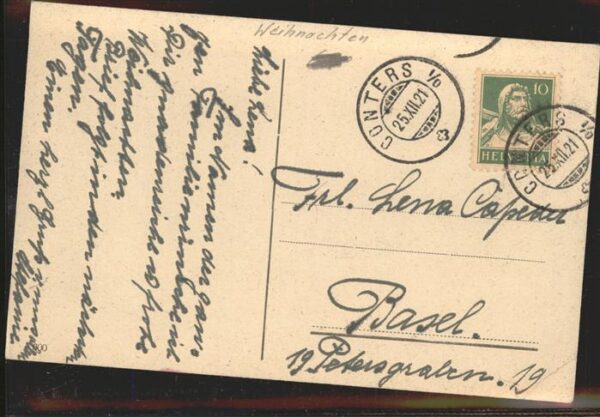 Weihnachten
Liebe Lena!
Im Namen der ganzen Familie wünsche ich
Dir gnadenreiche & frohe
Weihnachten.
Brief folgt in den nächsten
Tagen.
Einen herzl. Gruss
CONTERS
25.XII.21
10
HELVETIA
CONTERS
25.XII.21
Frl. Lena Capeder
Basel.
19 Petersgraben. 19